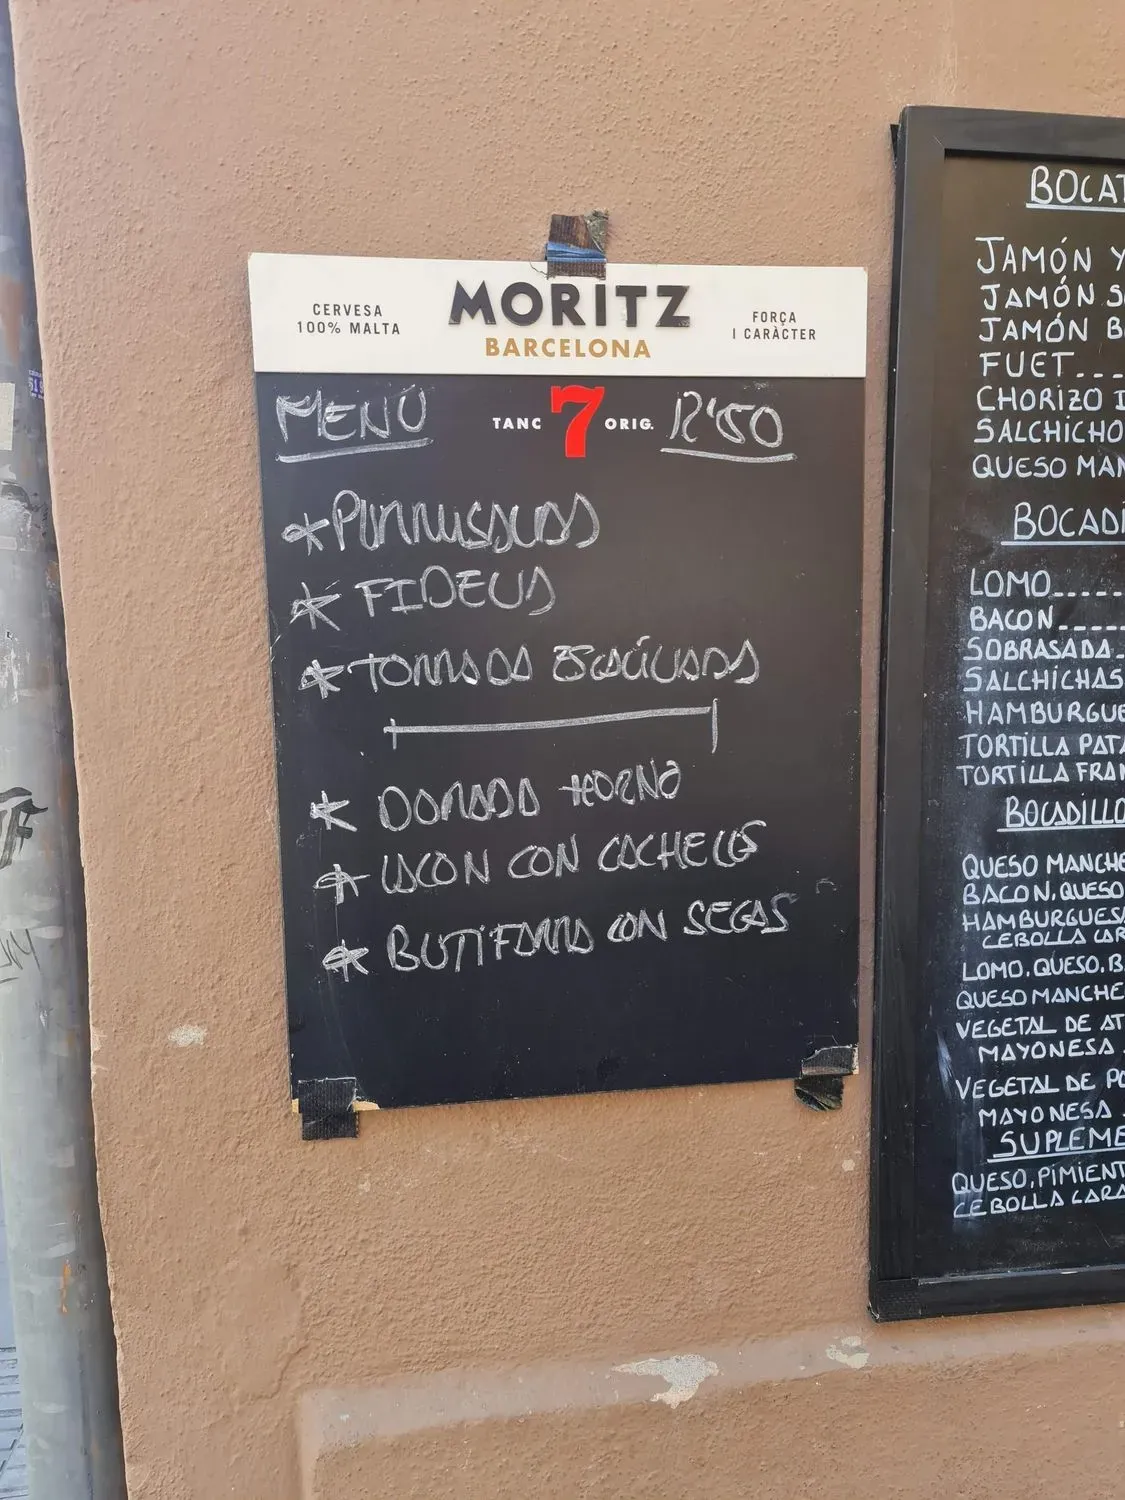 MORITZ
BARCELONA
CERVESA
100% MALTA
FORÇA
I CARÀCTER
TANC 7 ORIG.
MENÚ 12'50
* PURRUSALDA
* FIDEUA
* TORRADA ESCALIVADA
* DORADA HORNO
* LACON CON CACHELOS
* BUTIFARRA CON SEGAS
BOCAT
JAMÓN Y
JAMÓN
JAMÓN B
FUET...
CHORIZO
SALCHICHO
QUESO MAN
BOCADI
LOMO.....
BACON....
SOBRASADA.
SALCHICHAS
HAMBURGUE
TORTILLA PATA
TORTILLA FRAN
BOCADILLO
QUESO MANCHE
BACON, QUESO
HAMBURGUESA
CEBOLLA CAR
LOMO, QUESO, B
QUESO MANCHE
VEGETAL DE AT
MAYONESA
VEGETAL DE PO
MAYONESA
SUPLEME
QUESO, PIMIENT
CEBOLLA CARA